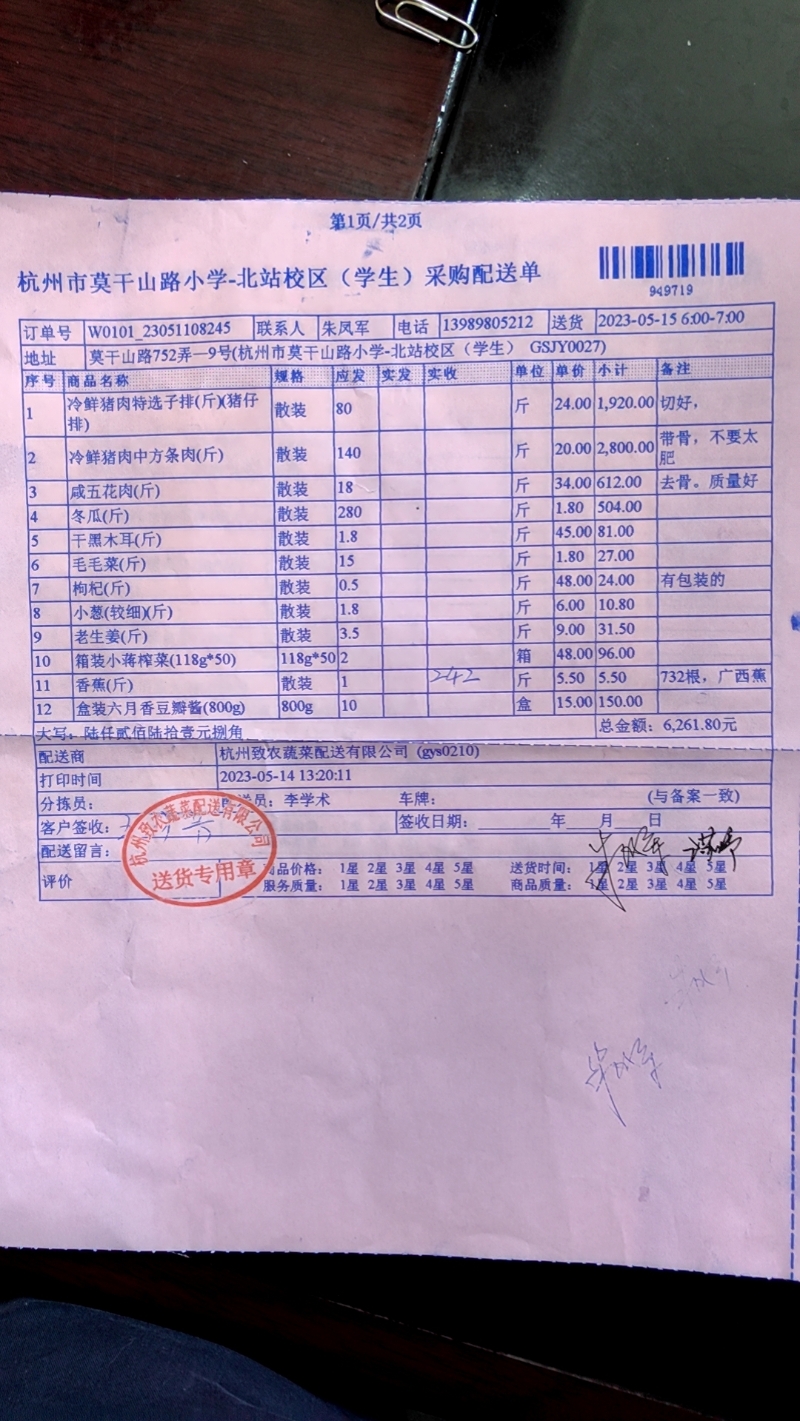 第1页/共2页
杭州市莫干山路小学-北站校区（学生）采购配送单
949719
订单号 W0101_23051108245 联系人 朱凤军 电话 13989805212 送货 2023-05-15 6:00-7:00
地址 莫干山路752弄一9号(杭州市莫干山路小学-北站校区（学生） GSJY0027)
序号 商品名称 规格 应发 实发 实收 单位 单价 小计 备注
1 冷鲜猪肉特选子排(斤)(猪仔排) 散装 80 斤 24.00 1,920.00 切好，
2 冷鲜猪肉中方条肉(斤) 散装 140 斤 20.00 2,800.00 带骨，不要太肥
3 咸五花肉(斤) 散装 18 斤 34.00 612.00 去骨。质量好
4 冬瓜(斤) 散装 280 斤 1.80 504.00
5 干黑木耳(斤) 散装 1.8 斤 45.00 81.00
6 毛毛菜(斤) 散装 15 斤 1.80 27.00
7 枸杞(斤) 散装 0.5 斤 48.00 24.00 有包装的
8 小葱(较细)(斤) 散装 1.8 斤 6.00 10.80
9 老生姜(斤) 散装 3.5 斤 9.00 31.50
10 箱装小蒋榨菜(118g*50) 118g*50 2 箱 48.00 96.00
11 香蕉(斤) 散装 1 242 斤 5.50 5.50 732根，广西蕉
12 盒装六月香豆瓣酱(800g) 800g 10 盒 15.00 150.00
大写：陆仟贰佰陆拾壹元捌角 总金额：6,261.80元
配送商 杭州致农蔬菜配送有限公司 (gys0210)
打印时间 2023-05-14 13:20:11
分拣员： 送员：李学术 车牌： (与备案一致)
客户签收： 签收日期： 年 月 日
配送留言：
评价 品价格： 1星 2星 3星 4星 5星 送货时间： 1星 2星 3星 4星 5星
服务质量： 1星 2星 3星 4星 5星 商品质量： 1星 2星 3星 4星 5星
杭州致农蔬菜配送有限公司
送货专用章